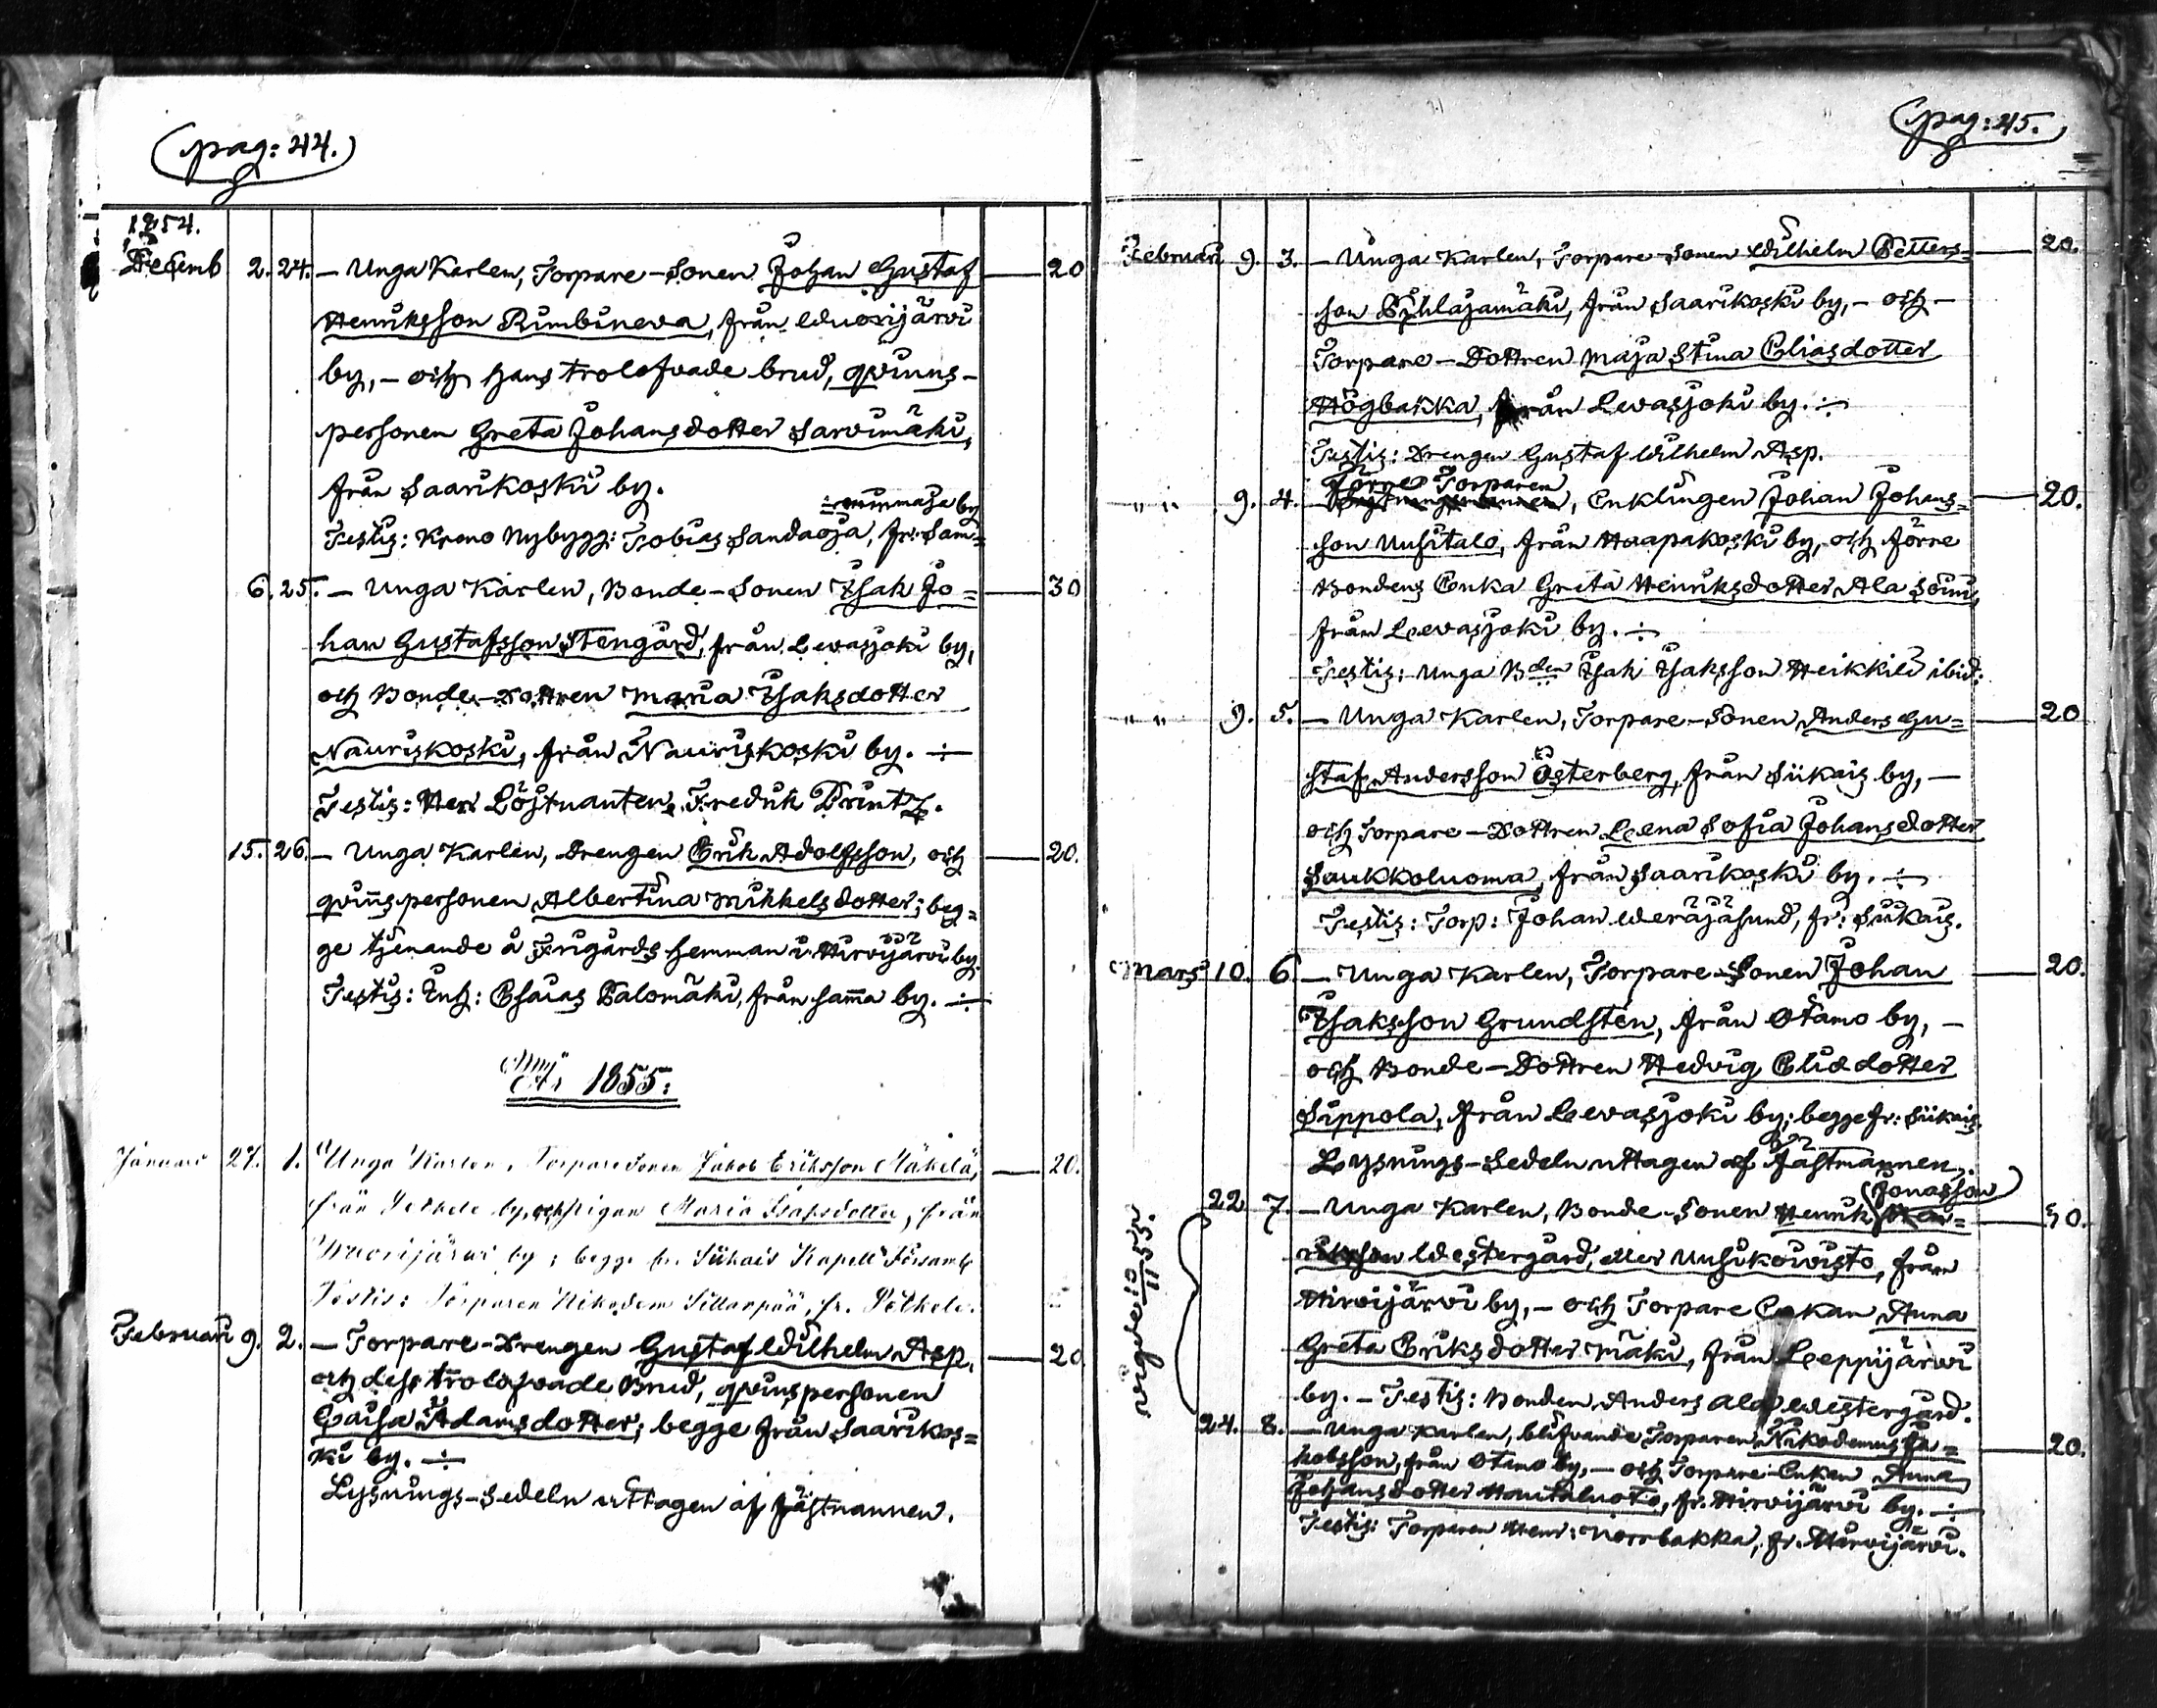 (pag: 44.)
1854.
Decemb 2. 24. — Unga Karlen, Torpare-Sonen Johan Gustaf — 20
Henriksson Rimbineva, från Wuorijärvi
by, — och hans trolofvade brud, qvinns-
personen Greta Johansdotter Sarvimäki,
från Saarikoski by.
Testis: Krono Nybygg: Tobias Sandaoja, fr: Sam=
=mimaja by
6. 25. — Unga Karlen, Bonde-Sonen Isak Jo= — 30
han Gustafsson Stengård, från Lewasjoki by,
och Bonde-Dottren Maria Isaksdotter
Nauriskoski, från Nauriskoski by. ÷
Testis: Herr Löjtnanten Fredrik Printz.
15. 26. — Unga Karlen, Drengen Erik Adolfsson, och — 20.
qvinspersonen Albertina Mikkelsdotter; beg=
ge tjenande å Frigårds hemman i Hirvijärvi by.
Testis: Inh: Esaias Palomäki, från samma by. ÷
1855:
Januari 27. 1. Unga Karlen, Torparesonen Jakob Eriksson Mäkelä, — 20.
från by, och pigan Maria Isaksdotter, från
Wuorijärvi by; begge fr. Siikais Kapell Församl.
Testis: Torparen Nikodem Sillanpää, fr.
Februari 9. 2. — Torpare-Drengen Gustaf Wilhelm Asp, — 20
och dess trolofvade Brud, qvinspersonen
Caisa Adamsdotter; begge från Saarikos=
ki by. ÷
Lysnings-Sedeln uttagen af fästmannen.
(pag: 45.)
Februari 9. 3. — Unga Karlen, Torpare-Sonen Wilhelm Petters= — 20.
son Pihlajamäki, från Saarikoski by, — och —
Torpare-Dottren Maja Stina Eliasdotter
Högbakka, från Lewasjoki by. ÷
Testis: Drengen Gustaf Wilhelm Asp.
Förre Torparen
" " 9. 4. , Enklingen Johan Johans= — 20.
son Uusitalo, från Haapakoski by, och förre
Bondens Enka Greta Henriksdotter Ala Souni,
från Lewasjoki by. ÷
Testis: Unga Bden Isak Isaksson Heikkilä ibid:
" " 9. 5. — Unga Karlen, Torpare-Sonen Anders Gu= — 20
staf Andersson Österberg, från Siikais by, —
och Torpare-Dottren Leena Sofia Johansdotter
Saukkoluoma, från Saarikoski by. ÷
Testis: Torp: Johan Weräjäsund, fr: Siikais.
Mars 10. 6. — Unga Karlen, Torpare-Sonen Johan — 20.
Isaksson Grundsten, från Otamo by, —
och Bonde-Dottren Hedvig Eliædotter
Sippola, från Lewasjoki by; begge fr: Siikais.
Lysnings-Sedeln uttagen af Fästmannen.
(Jonasson)
22. 7. — Unga Karlen, Bonde-Sonen Henrik Hen= — 50.
riksson Westergård, eller Uusikoivisto, från
Hirvijärvi by, — och Torpare Enkan Anna
Greta Eriksdotter Mäki, från Leppijärvi
by. — Testis: Bonden Anders Ala Westergård.
24. 8. — Unga Karlen, blifvande Torparen Nikodemus Ja= — 20.
kobsson, från Otamo by, — och Torpare-Enkan Anna
Johansdotter Hautaluoto, fr. Hirvijärvi by. ÷
Testis: Torparen Henr: Norrbakka, fr. Hirvijärvi.